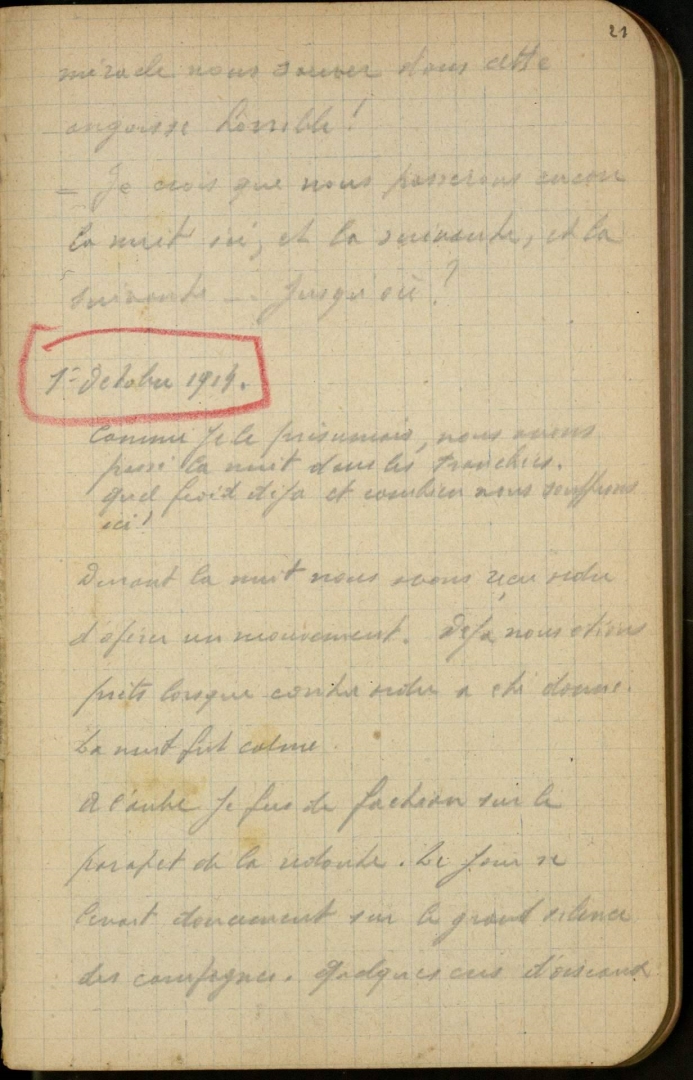 21
miracle nous sauver dans cette
angoisse horrible!
– Je crois que nous passerons encore
la nuit ici, et la suivante, et la
suivante... Jusqu'où?
1er Octobre 1914.
Comme je le présumais, nous avons
passé la nuit dans les tranchées.
Quel froid déjà et combien nous souffrons
ici!
Durant la nuit nous avons reçu ordre
d'opérer un mouvement. Déjà nous étions
prêts lorsque contre ordre a été donné.
La nuit fut calme.
A l'aube je fus de faction sur le
parapet de la redoute. Le jour se
levait doucement sur le grand silence
des campagnes. Quelques cris d'oiseaux